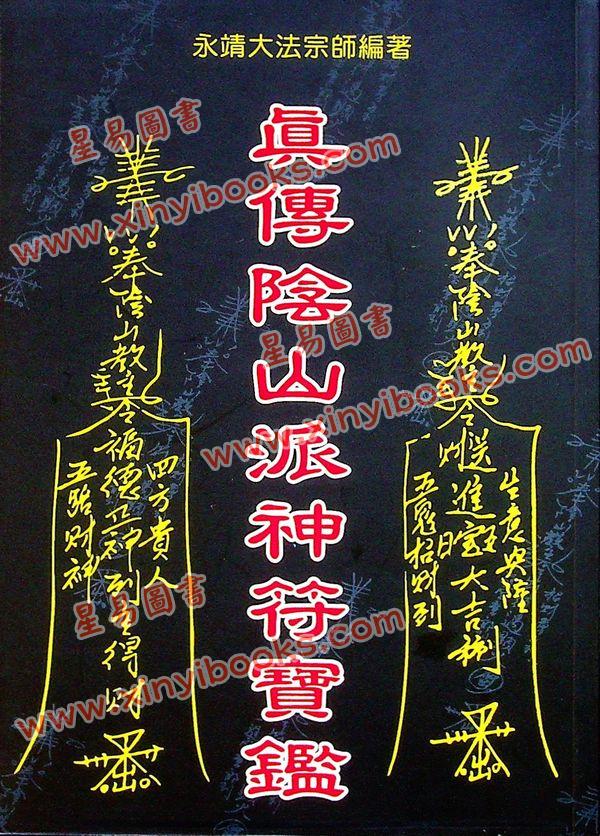 永靖大法宗師編著
真傳陰山派神符寶鑑
奉陰山教主令
進寶大吉利
生意興隆
五鬼招財到
奉陰山教主令
福德正神到
得財
四方貴人
五路財神
星易圖書
www.xinyibooks.com
星易圖書
www.xinyibooks.com
星易圖書
www.xinyibooks.com
星易圖書
www.xinyibooks.com